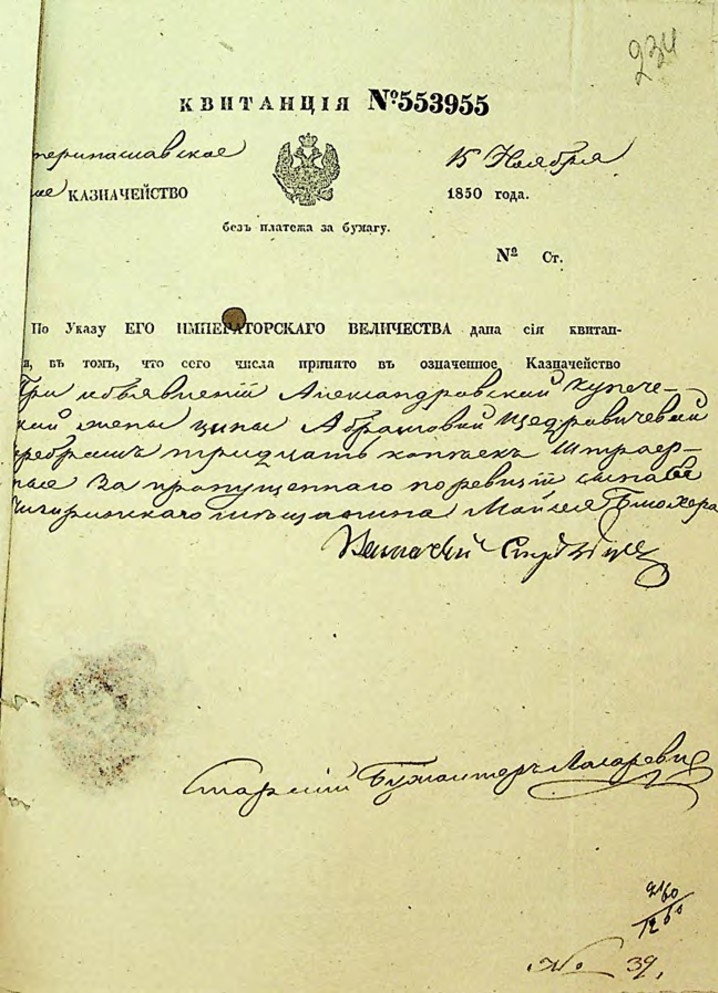 234
КВИТАНЦІЯ №553955
теринославское
15 Ноября
ное КАЗНАЧЕЙСТВО
1850 года.
безъ платежа за бумагу.
№ Ст.
По Указу ЕГО ИМПЕРАТОРСКАГО ВЕЛИЧЕСТВА дана сія квитан-
я, въ томъ, что сего числа принято въ означенное Казначейство
При объявленіи Александровской купече-
кой жены Ципы Абрамовой Щедровичевой
серебромъ тридцать копѣекъ штраф-
ные за пропущеннаго по ревизіи сына ея
Чигиринскаго мѣщанина
Старшій Бухгалтеръ Лазаревич
2160
1260
№ 39,